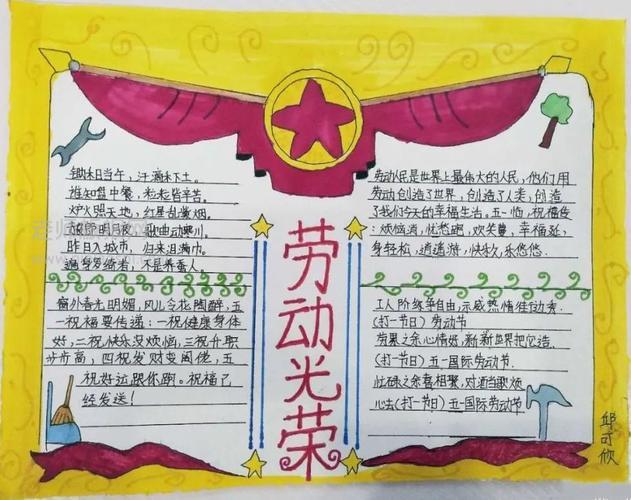 锄禾日当午，汗滴禾下土。
谁知盘中餐，粒粒皆辛苦。
炉火照天地，红星乱紫烟。
赧郎明月夜，歌曲动寒川。
昨日入城市，归来泪满巾。
遍身罗绮者，不是养蚕人。
窗外春光明媚，风儿令花陶醉，五
一祝福要传递：一祝健康身体
好，二祝快乐没烦恼，三祝升职
步步高，四祝发财变阔佬，五
祝好运跟你跑。祝福已
经发送！
劳动光荣
劳动人民是世界上最伟大的人民，他们用
劳动创造了世界，创造了人类，创造
了我们今天的幸福生活。五一陌，祝福您
：烦恼消，忧愁跑，欢笑蔓，幸福延，
身轻松，逍遥游，快乐久，乐悠悠。
工人阶级争自由，示威热情往心秀。
（打一节日）劳动节
劳累之余心情好，新新世界把它造。
（打一节日）五一国际劳动节.
忙碌之余喜相聚，对酒当歌烦
心去（打一节日）五一国际劳动节
邱可欣